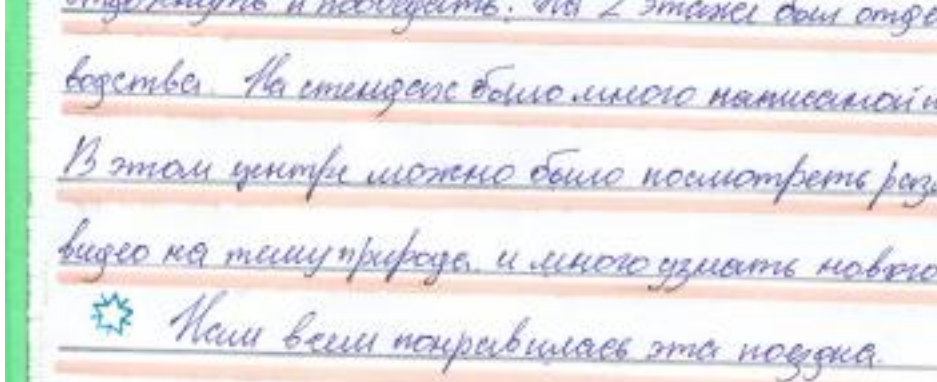 отдохнуть и пообедать. На 2 этаже был отде
водства. На стендах было много написаной и
В этом центре можно было посмотреть раз
видео на тему природа и много узнать нового
Нам всем понравилась эта поездка.